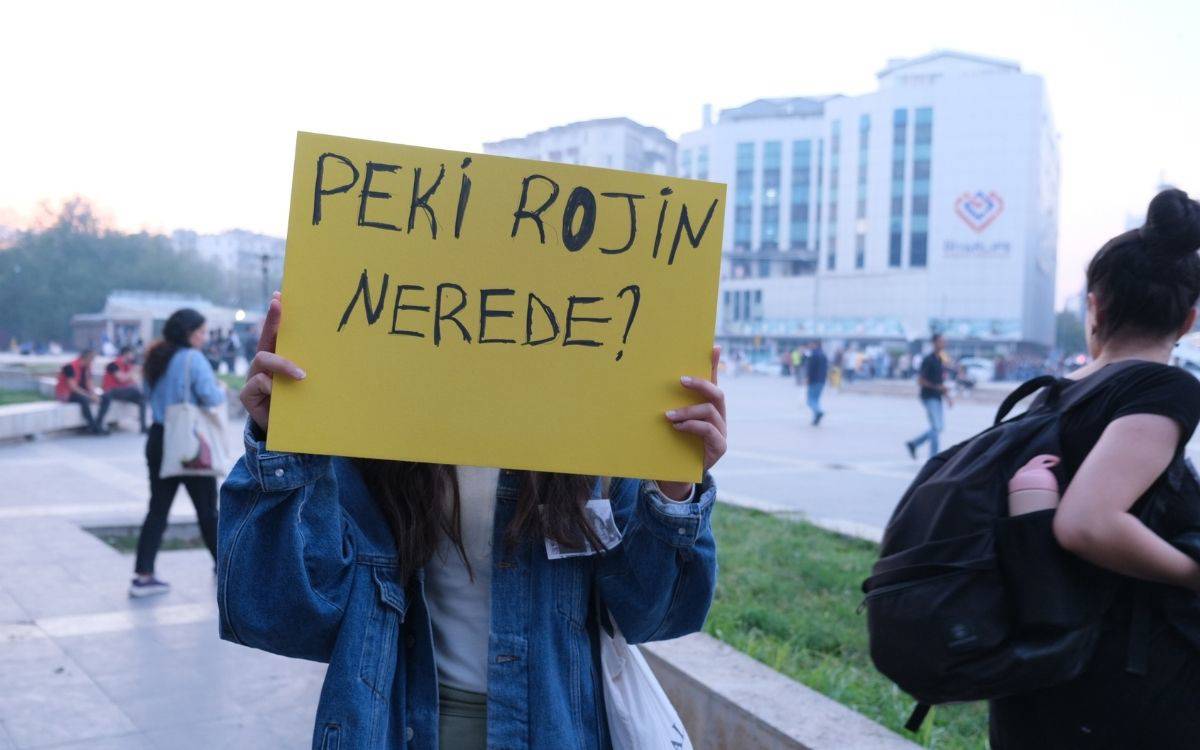 PEKİ ROJİN
NEREDE?